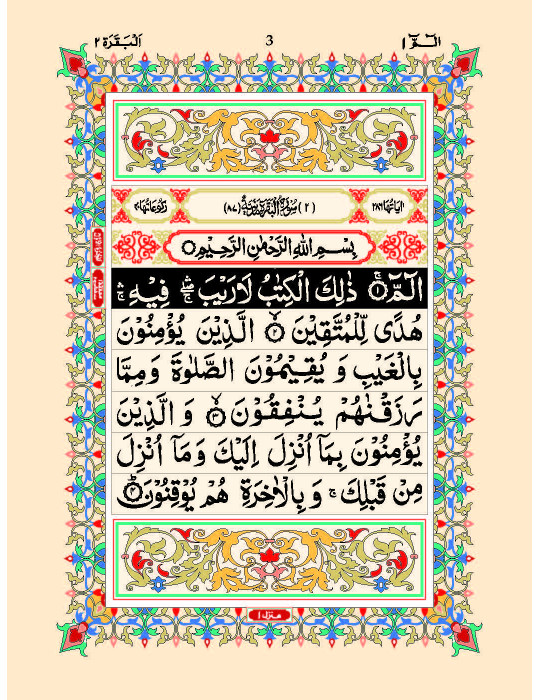 الٓمّٓ ١ 3 اَلْبَقَرَة ٢
اٰیَاتُهَا ٢٨٦ (٢) سُوْرَةُ الْبَقَرَةِ مَدَنِیَّةٌ (٨٧) رُكُوْعَاتُهَا ٤٠
بِسْمِ اللّٰهِ الرَّحْمٰنِ الرَّحِیْمِ
الٓمّٓ ۚ﴿١﴾ ذٰلِكَ الْكِتٰبُ لَا رَیْبَ ۛۖۚ فِیْهِ ۛۚ
هُدًی لِّلْمُتَّقِیْنَ ۙ﴿٢﴾ الَّذِیْنَ یُؤْمِنُوْنَ
بِالْغَیْبِ وَ یُقِیْمُوْنَ الصَّلٰوةَ وَ مِمَّا
رَزَقْنٰهُمْ یُنْفِقُوْنَ ۙ﴿٣﴾ وَ الَّذِیْنَ
یُؤْمِنُوْنَ بِمَاۤ اُنْزِلَ اِلَیْكَ وَ مَاۤ اُنْزِلَ
مِنْ قَبْلِكَ ۚ وَ بِالْاٰخِرَةِ هُمْ یُوْقِنُوْنَ ؕ﴿٤﴾
منزل ١